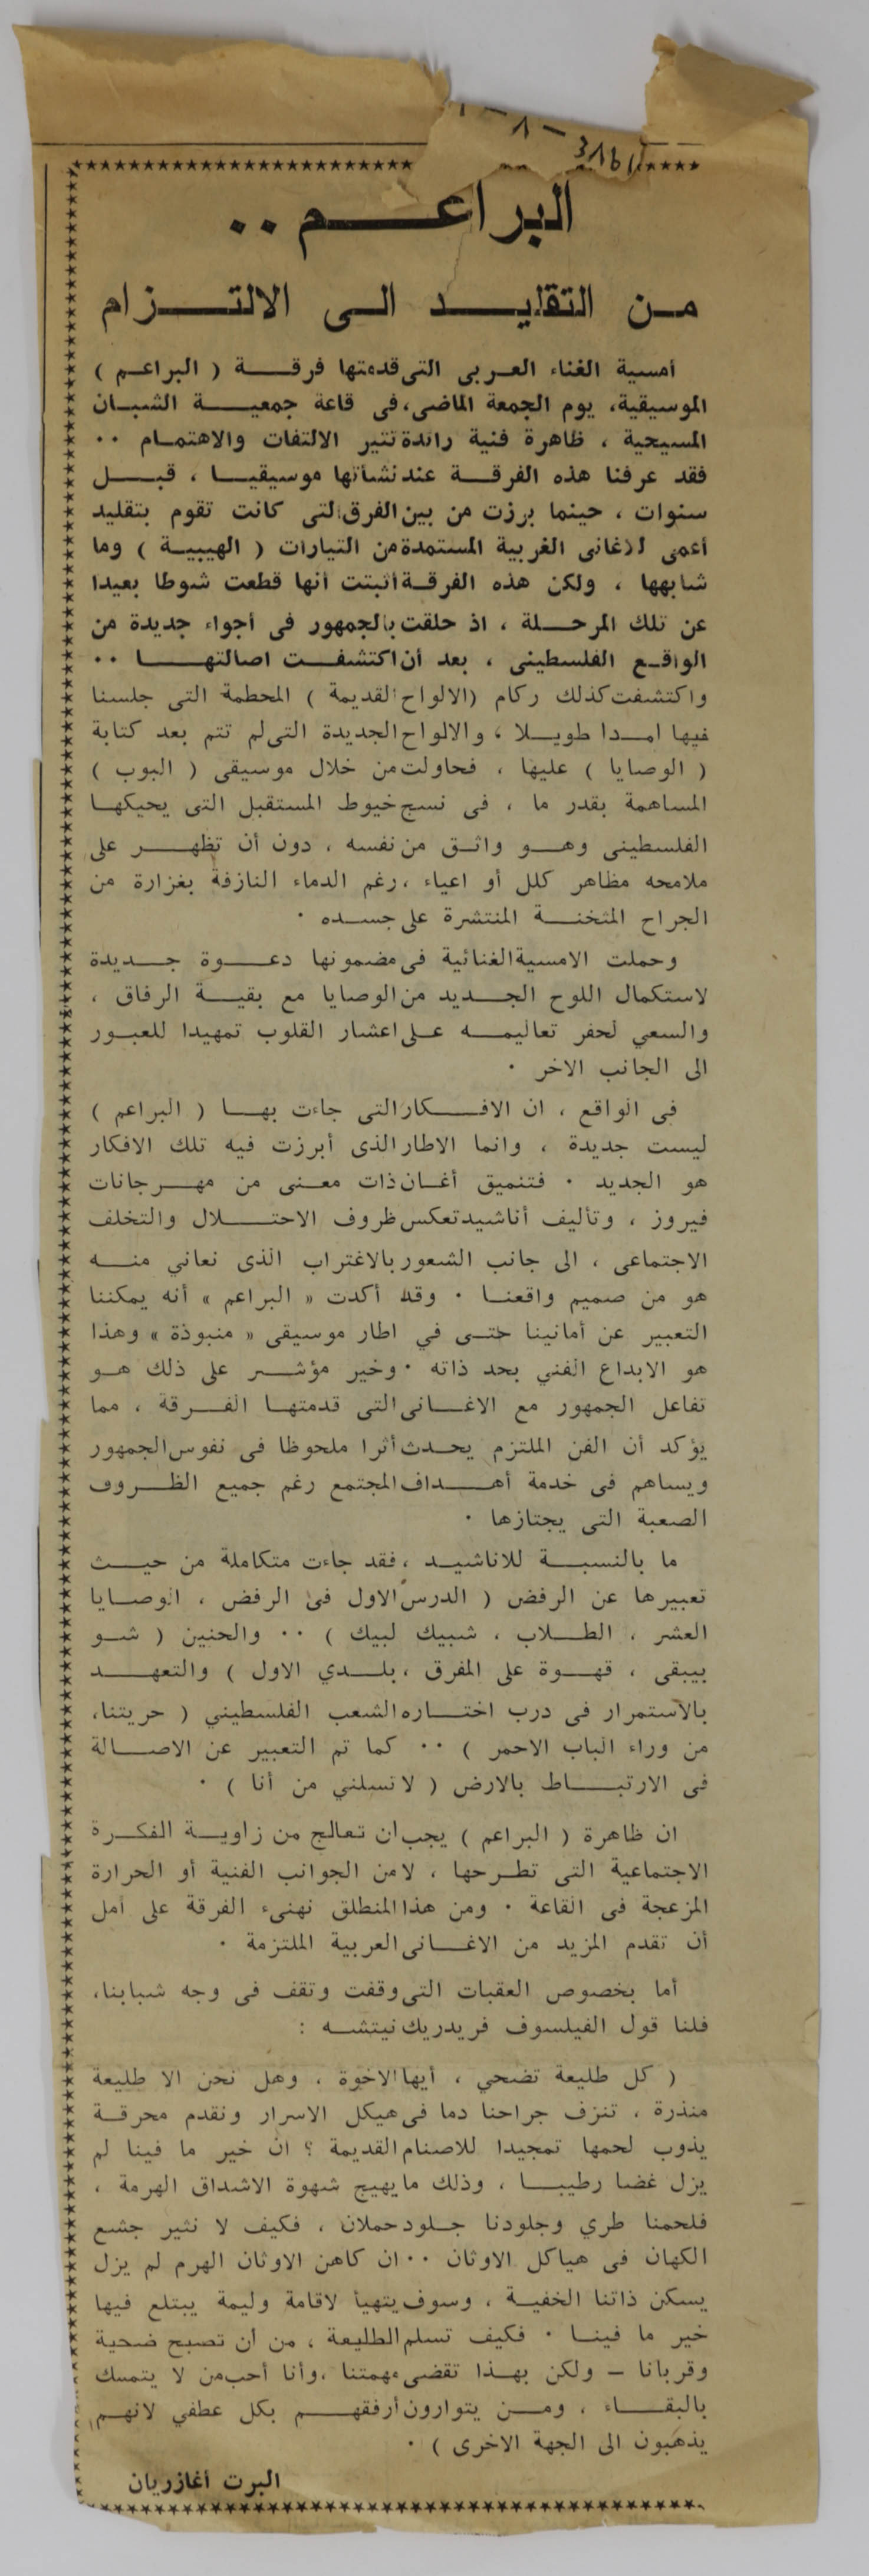 البراعم ..
من التقليد الى الالتزام
أمسية الغناء العربى التى قدمتها فرقة ( البراعم )
الموسيقية، يوم الجمعة الماضى، فى قاعة جمعية الشبان
المسيحية ، ظاهرة فنية رائدة تثير الالتفات والاهتمام ..
فقد عرفنا هذه الفرقة عند نشأتها موسيقيا ، قبل
سنوات ، حينما برزت من بين الفرق التى كانت تقوم بتقليد
أعمى للاغانى الغربية المستمدة من التيارات ( الهيبية ) وما
شابهها ، ولكن هذه الفرقة أثبتت أنها قطعت شوطا بعيدا
عن تلك المرحلة ، اذ حلقت بالجمهور فى أجواء جديدة من
الواقع الفلسطينى ، بعد أن اكتشفت اصالتها ..
واكتشفت كذلك ركام (الالواح القديمة ) المحطمة التى جلسنا
فيها امدا طويلا ، والالواح الجديدة التى لم تتم بعد كتابة
( الوصايا ) عليها ، فحاولت من خلال موسيقى ( البوب )
المساهمة بقدر ما ، فى نسج خيوط المستقبل التى يحيكها
الفلسطينى وهو واثق من نفسه ، دون أن تظهر على
ملامحه مظاهر كلل أو اعياء ، رغم الدماء النازفة بغزارة من
الجراح المثخنة المنتشرة على جسده .
وحملت الامسية الغنائية فى مضمونها دعوة جديدة
لاستكمال اللوح الجديد من الوصايا مع بقية الرفاق ،
والسعي لحفر تعاليمه على اعشار القلوب تمهيدا للعبور
الى الجانب الاخر .
فى الواقع ، ان الافكار التى جاءت بها ( البراعم )
ليست جديدة ، وانما الاطار الذى أبرزت فيه تلك الافكار
هو الجديد . فتنميق أغان ذات معنى من مهرجانات
فيروز ، وتأليف أناشيد تعكس ظروف الاحتلال والتخلف
الاجتماعى ، الى جانب الشعور بالاغتراب الذى نعاني منه
هو من صميم واقعنا . وقد أكدت « البراعم » أنه يمكننا
التعبير عن أمانينا حتى في اطار موسيقى « منبوذة » وهذا
هو الابداع الفني بحد ذاته . وخير مؤشر على ذلك هو
تفاعل الجمهور مع الاغانى التى قدمتها الفرقة ، مما
يؤكد أن الفن الملتزم يحدث أثرا ملحوظا فى نفوس الجمهور
ويساهم فى خدمة أهداف المجتمع رغم جميع الظروف
الصعبة التى يجتازها .
ما بالنسبة للاناشيد ، فقد جاءت متكاملة من حيث
تعبيرها عن الرفض ( الدرس الاول فى الرفض ، الوصايا
العشر ، الطلاب ، شبيك لبيك ) .. والحنين ( شو
بيبقى ، قهوة على المفرق ، بلدي الاول ) والتعهد
بالاستمرار فى درب اختاره الشعب الفلسطيني ( حريتنا،
من وراء الباب الاحمر ) .. كما تم التعبير عن الاصالة
فى الارتباط بالارض ( لا تسلني من أنا ) .
ان ظاهرة ( البراعم ) يجب ان تعالج من زاوية الفكرة
الاجتماعية التى تطرحها ، لا من الجوانب الفنية أو الحرارة
المزعجة فى القاعة . ومن هذا المنطلق نهنىء الفرقة على أمل
أن تقدم المزيد من الاغانى العربية الملتزمة .
أما بخصوص العقبات التى وقفت وتقف فى وجه شبابنا،
فلنا قول الفيلسوف فريدريك نيتشه :
( كل طليعة تضحي ، أيها الاخوة ، وهل نحن الا طليعة
منذرة ، تنزف جراحنا دما فى هيكل الاسرار ونقدم محرقة
يذوب لحمها تمجيدا للاصنام القديمة ؟ ان خير ما فينا لم
يزل غضا رطيبا ، وذلك ما يهيج شهوة الاشداق الهرمة ،
فلحمنا طري وجلودنا جلود حملان ، فكيف لا نثير جشع
الكهان فى هياكل الاوثان .. ان كاهن الاوثان الهرم لم يزل
يسكن ذاتنا الخفية ، وسوف يتهيأ لاقامة وليمة يبتلع فيها
خير ما فينا . فكيف تسلم الطليعة ، من أن تصبح ضحية
وقربانا – ولكن بهذا تقضى مهمتنا ، وأنا أحب من لا يتمسك
بالبقاء ، ومن يتوارون أرفقهم بكل عطفي لانهم
يذهبون الى الجهة الاخرى ) .
البرت أغازريان